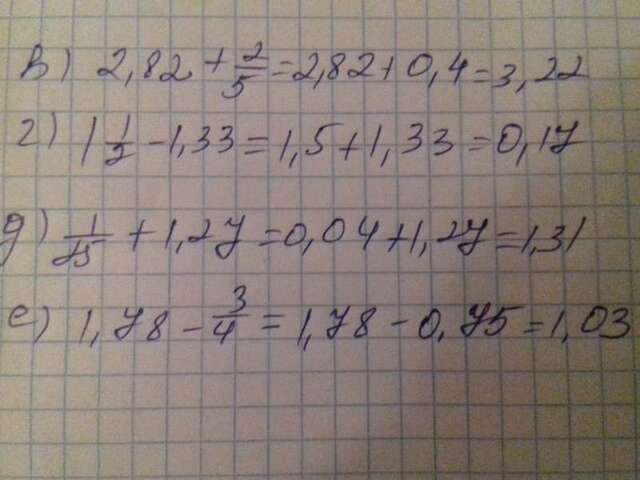 в) 2,82 + 2/5 = 2,82 + 0,4 = 3,22
г) 1 1/2 - 1,33 = 1,5 + 1,33 = 0,17
д) 1/25 + 1,27 = 0,04 + 1,27 = 1,31
е) 1,78 - 3/4 = 1,78 - 0,75 = 1,03